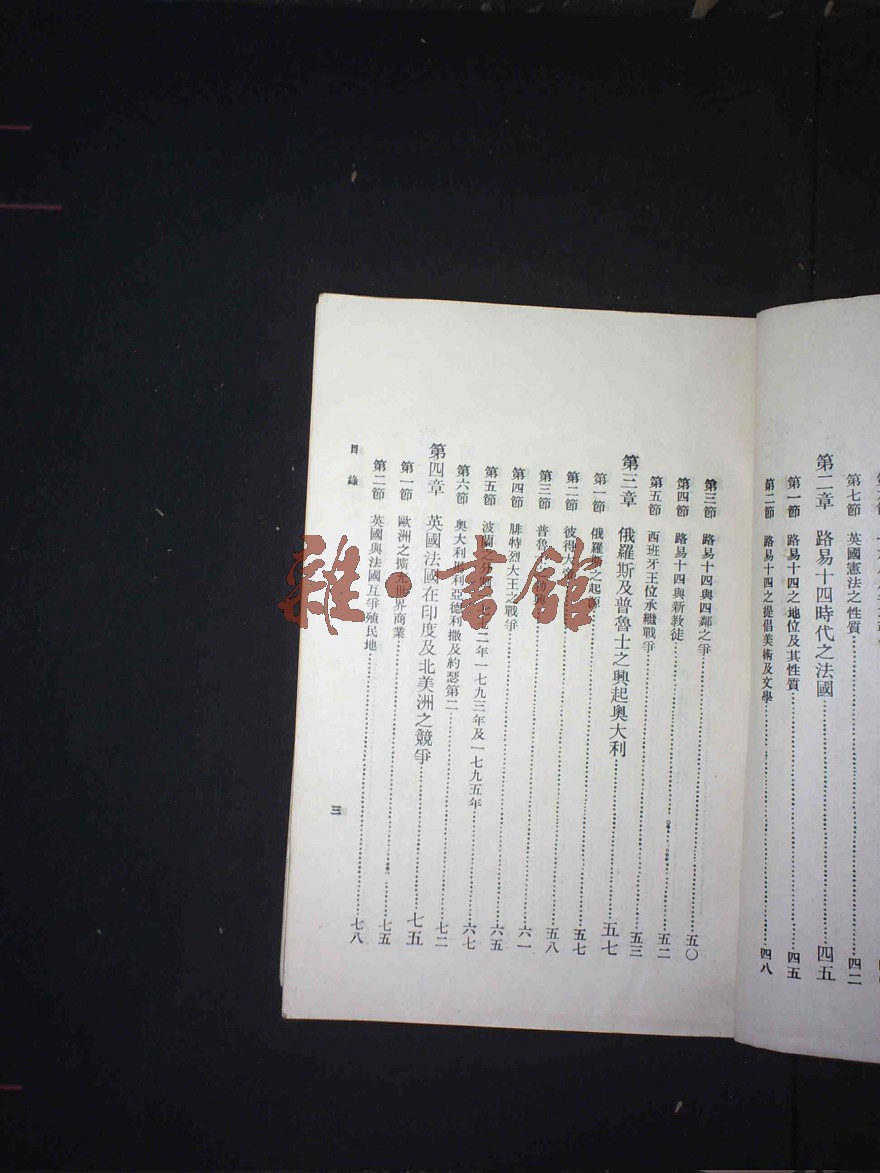 第七節 英國憲法之性質 四二
第二章 路易十四時代之法國 四五
第一節 路易十四之地位及其性質 四五
第二節 路易十四之提倡美術及文學 四八
第三節 路易十四與四鄰之爭 五〇
第四節 路易十四與新教徒 五二
第五節 西班牙王位承繼戰爭 五三
第三章 俄羅斯及普魯士之興起奧大利 五七
第一節 俄羅斯之起源 五七
第二節 彼得大 五八
第三節 普魯 六一
第四節 腓特烈大王之戰爭 六五
第五節 波蘭之分割 一七七二年一七九三年及一七九五年 六七
第六節 奧大利 馬利亞德利撒及約瑟第二 七二
第四章 英國法國在印度及北美洲之競爭 七五
第一節 歐洲之擴充世界商業 七五
第二節 英國與法國互爭殖民地 七八
目錄
三
雜·書館